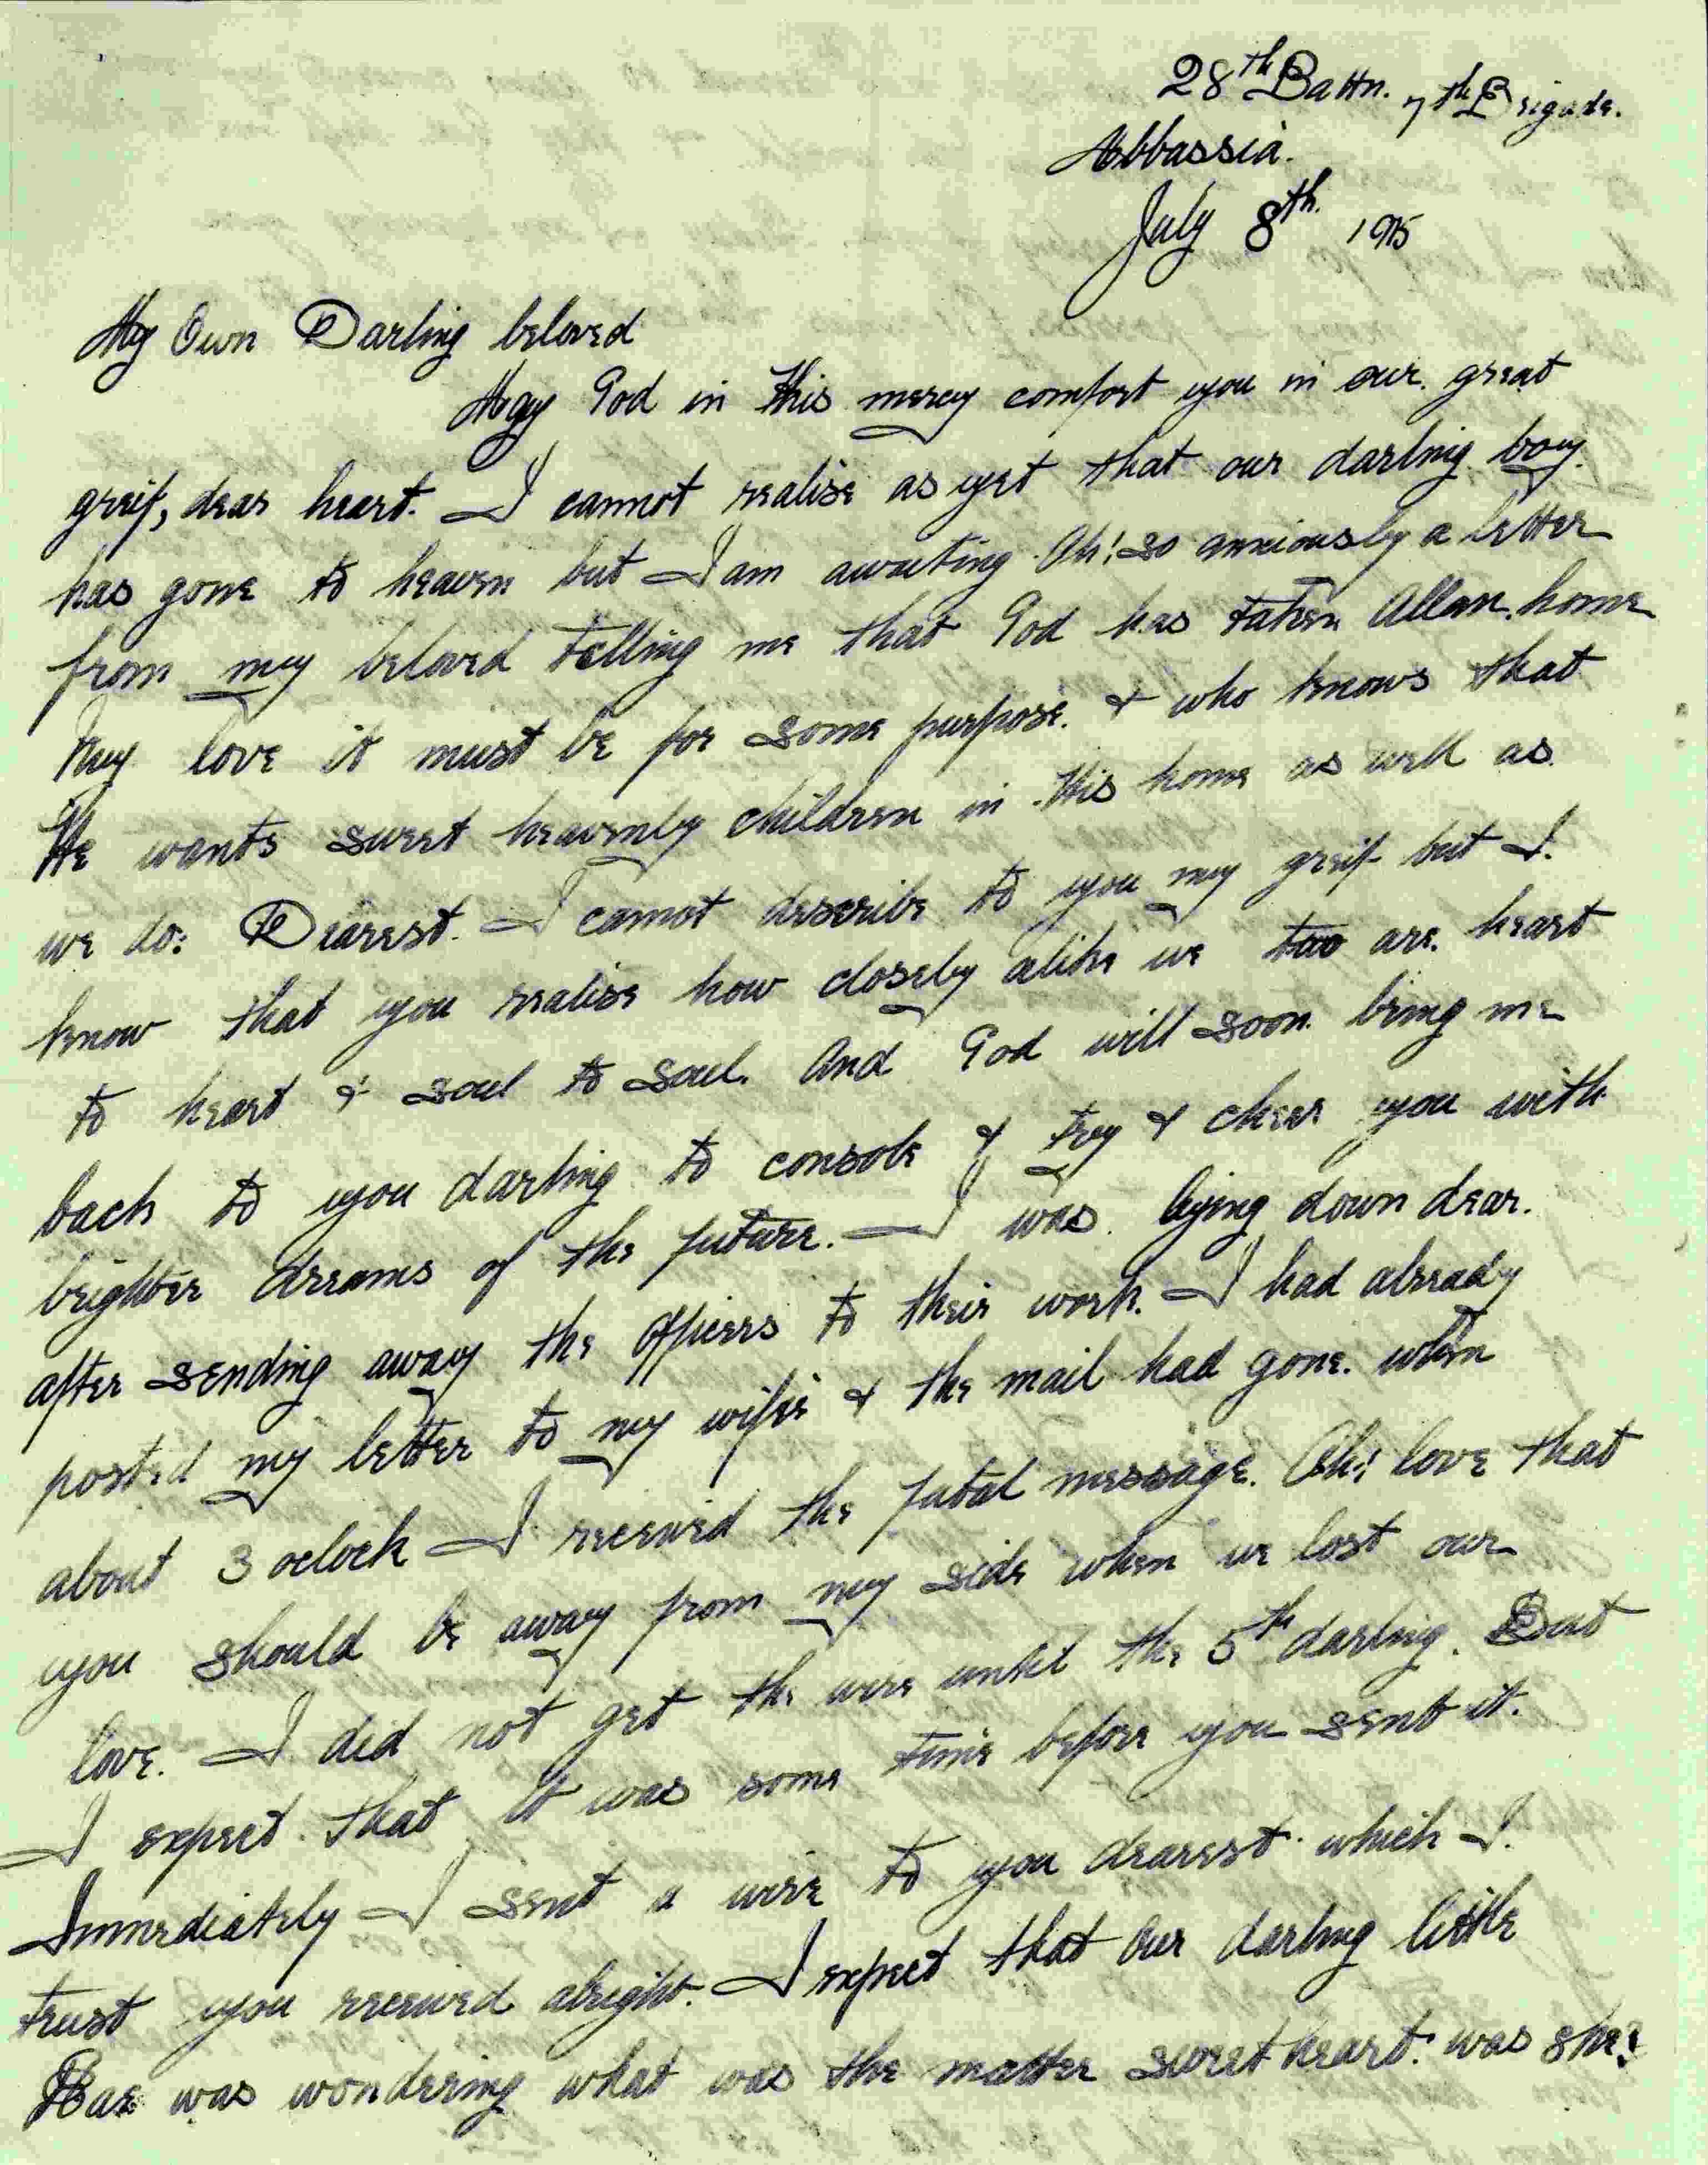 28th Battn. 7th Brigade.
Abbassia.
July 8th. 1915
My Own Darling beloved
May God in His mercy comfort you in our great
greif, dear heart. I cannot realise as yet that our darling boy
has gone to heaven but I am awaiting Oh! so anxiously a letter
from my beloved telling me that God has taken Allan home
My love it must be for some purpose. & who knows that
He wants sweet heavenly children in His home as well as
we do: Dearest. I cannot describe to you my greif but I
know that you realise how closely alike we too are. heart
to heart & soul to soul. And God will soon bring me
back to you darling to console & try & cheer you with
brighter dreams of the future. I was lying down dear.
after sending away the Officers to their work. I had already
posted my letter to my wifie & the mail had gone. when
about 3 oclock I received the fatal message. Oh! love that
you should be away from my side when we lost our
love. I did not get the wire until the 5th darling. But
I expect that it was some time before you sent it.
Immediately I sent a wire to you dearest which I
trust you received alright. I expect that Our darling little
Rae was wondering what was the matter sweetheart. was she?